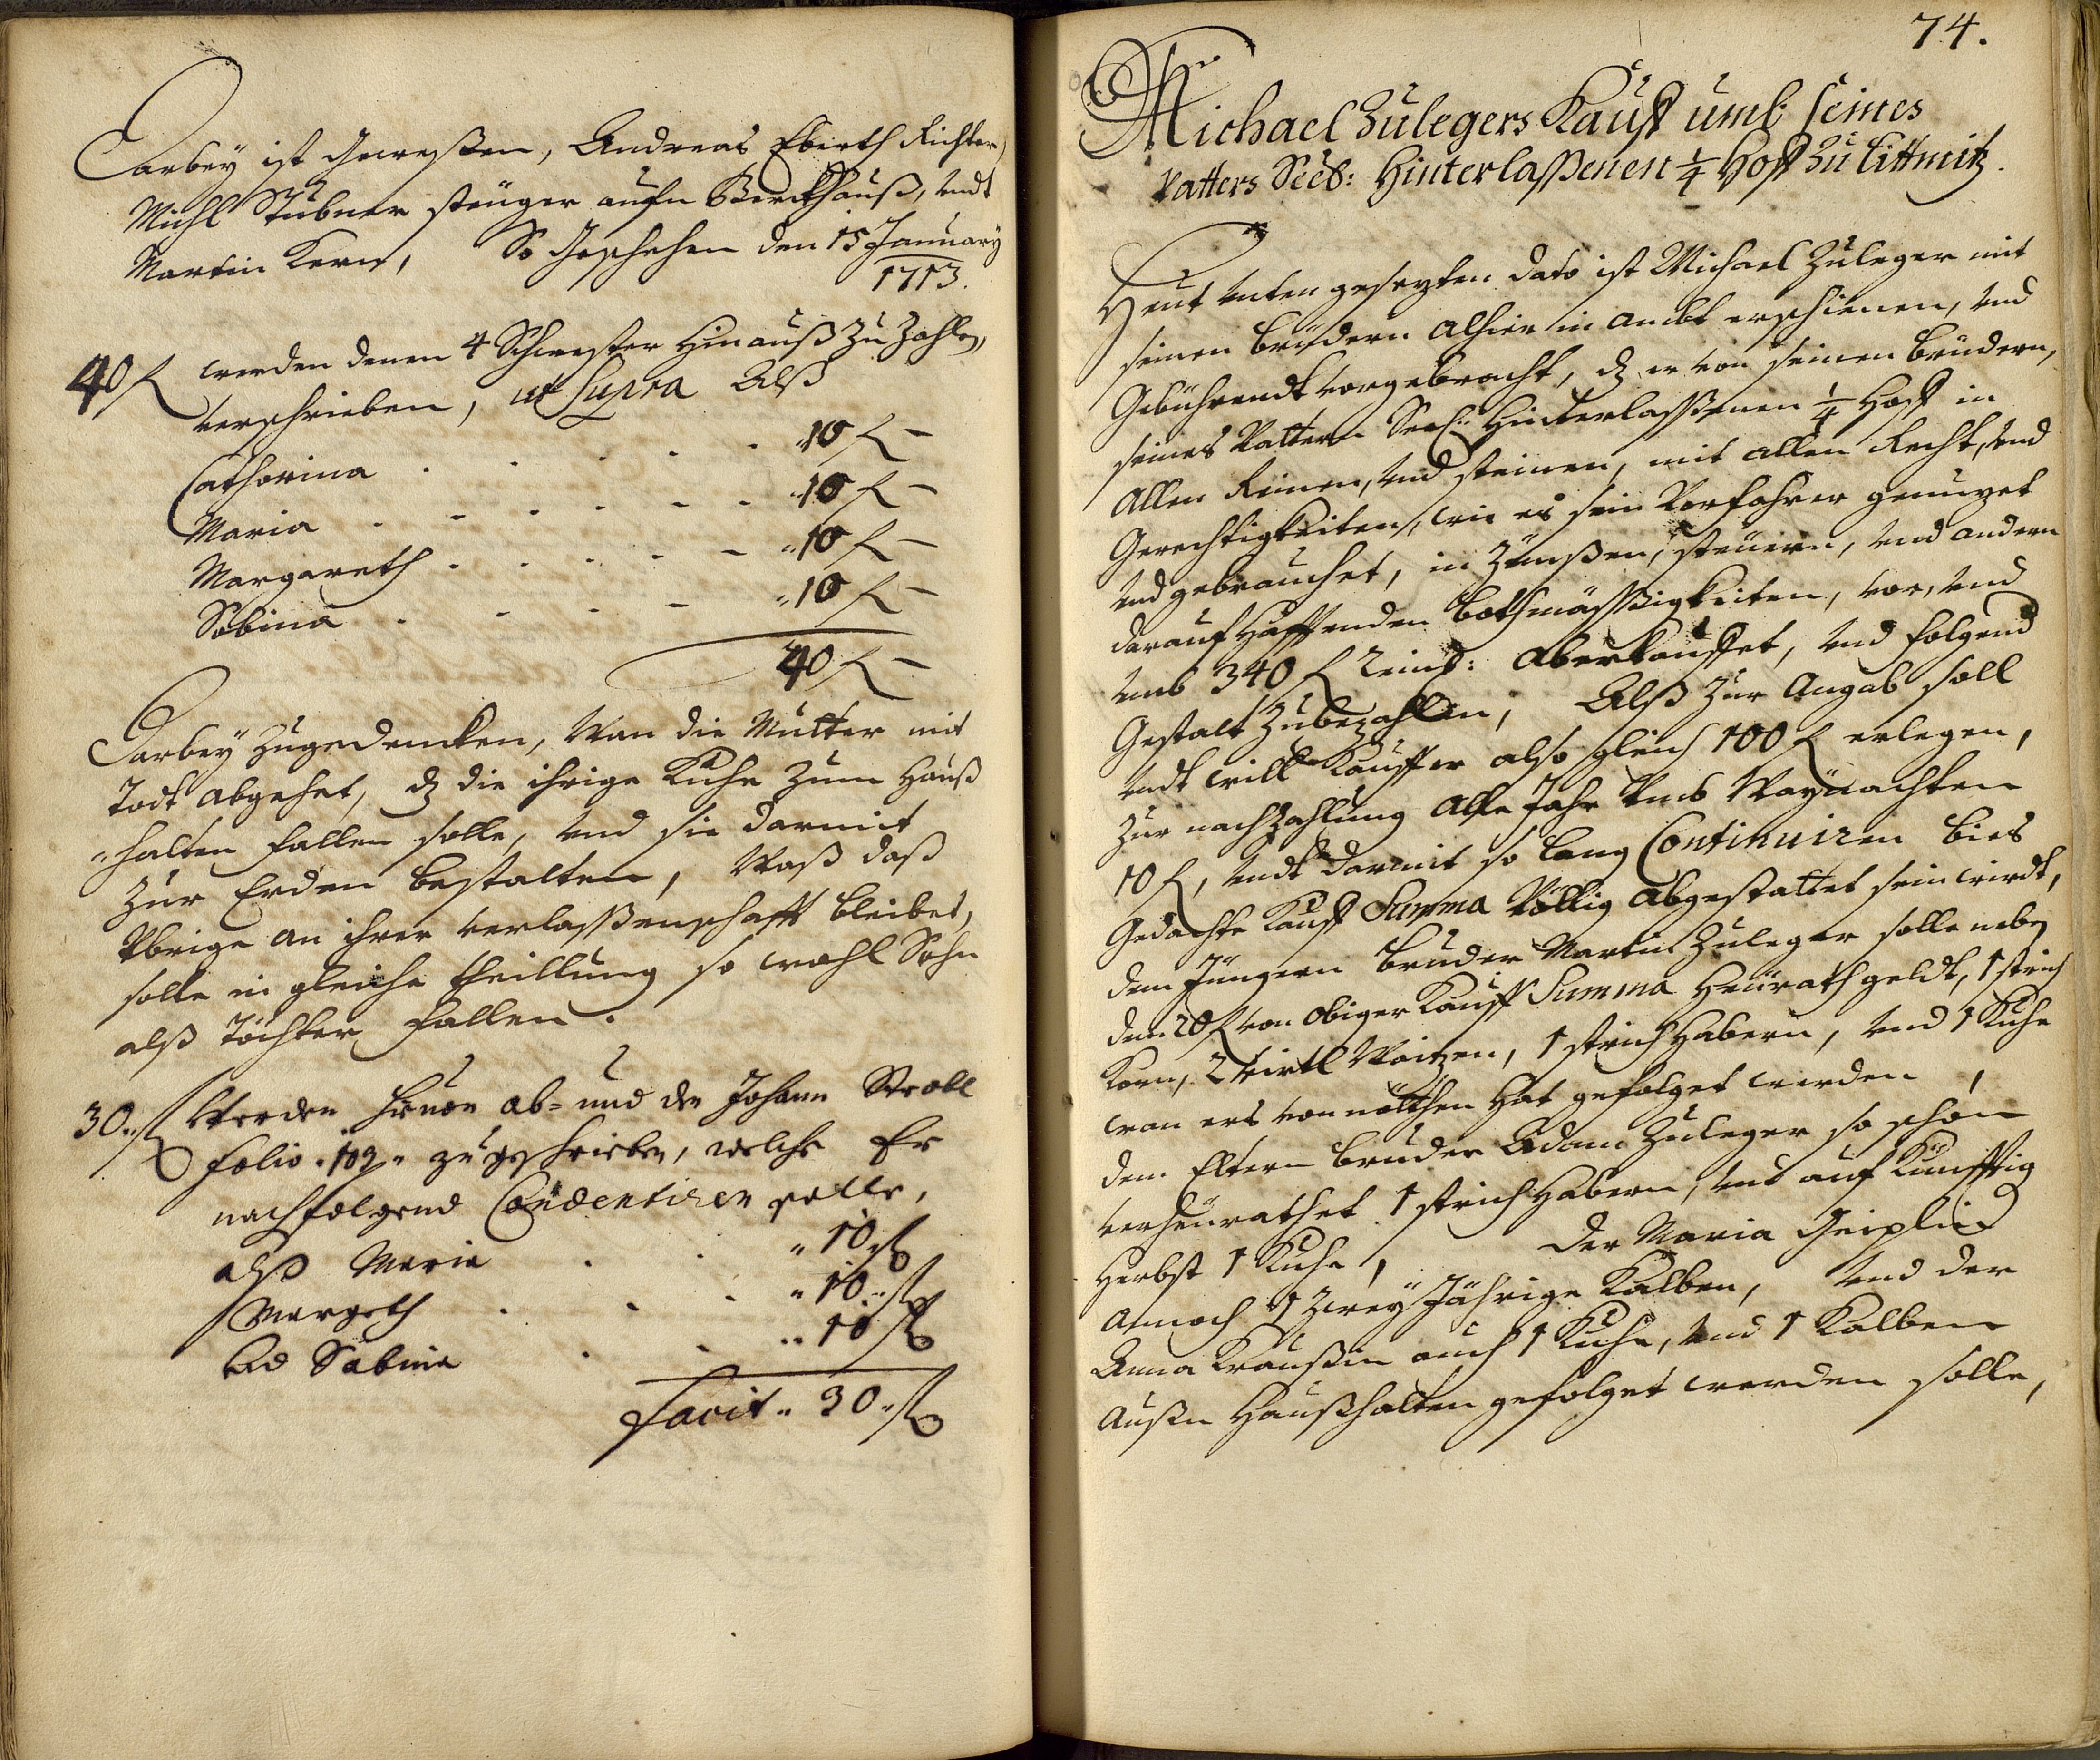 Darbey ist Gewesßen, Andreas Ebirth Richter,
Michl Stübner steüger aufn Berckhauß, undt
Martin Kern, So Geschehen den 15 January
1713.
40 f werden denen 4 Schwester hinauß zu Zahlen,
verschrieben, ut Supra Alß
Catharina . . . . . 10 f –
Maria . . . . . 10 f –
Margareth . . . . „10 f –
Sabina . . . . „10 f –
40 f –
Darbey zugedencken, Wan die Mutter mit
Todt abgehet, dz die ihrige Kuhe zum Hauß
„halten fallen solle, und sie darmit
zur Erden bestalten, Waß daß
Vbrige an ihrer verlaßenschafft bleibet,
solle in gleiche theillung so wohl Sohn
alß Töchter fallen.
30„ f Werden hievon ab- und den Johann Strobl
folio „ 102 „ zugeschrieben, welche Er
nachfolgend Condentiren solle,
alß Maria . . „ 10 f
Margeth . . . „ 10 „ f
Und Sabina . . „ 10 f
Facit „ 30 „ f
74.
Michael Zulegers Kauff umb seines
Vatters Seel: Hinterlaßenen 1/4 Hoff zu Littmitz.
Heut unten gesezten dato ist Michael Zuleger mit
seinen Brüdern alhier in ambt erschienen, und
Gebührendt vorgebracht, dz er von seinen Brüdern,
seines Vattern Seel: Hinterlaßenen 1/4 Hoff in
Allen Reinen, und steinen, mit allen Recht, und
Gerechtigkeiten, wie es sein Vorfahrer genuzet
und gebrauchet, in Zinnßen, steüern, und andern
darauf hafftenden bothmäßsigkeiten, vor, und
umb 340 f Reinl: aberkauffet, und folgend
Gestalt zubezahlen, Alß zur Angab soll
undt will Kauffer also gleich 100 f erlegen,
Zur nachzahlung Alle Jahr Vmb Waynachten
10 f, undt darmit so lang Continuiren bies
Gedachte Kauff Summa Völlig abgestattet sein wirdt,
dem Jüngern Bruder Martin Zuleger solle neben
den 20 f von obiger Kauff Summa Heürathgeldt, 1 strich
Korn, 2 virtl Waitzen, 1 strich Habern, und 1 Kuhe
wan ers von nöthen hat gefolget werden,
dem Eltern Bruder Adam Zuleger so schon
verheürathet 1 strich Habern, und auf Künfftig
Herbst 1 Kuhe, Der Maria
Annoch 1 Zwey Jährige Kalben, und der
Anna Kraußin auch 1 Kuhe, und 1 Kalben
Außn Haußhalten gefolget werden solle,